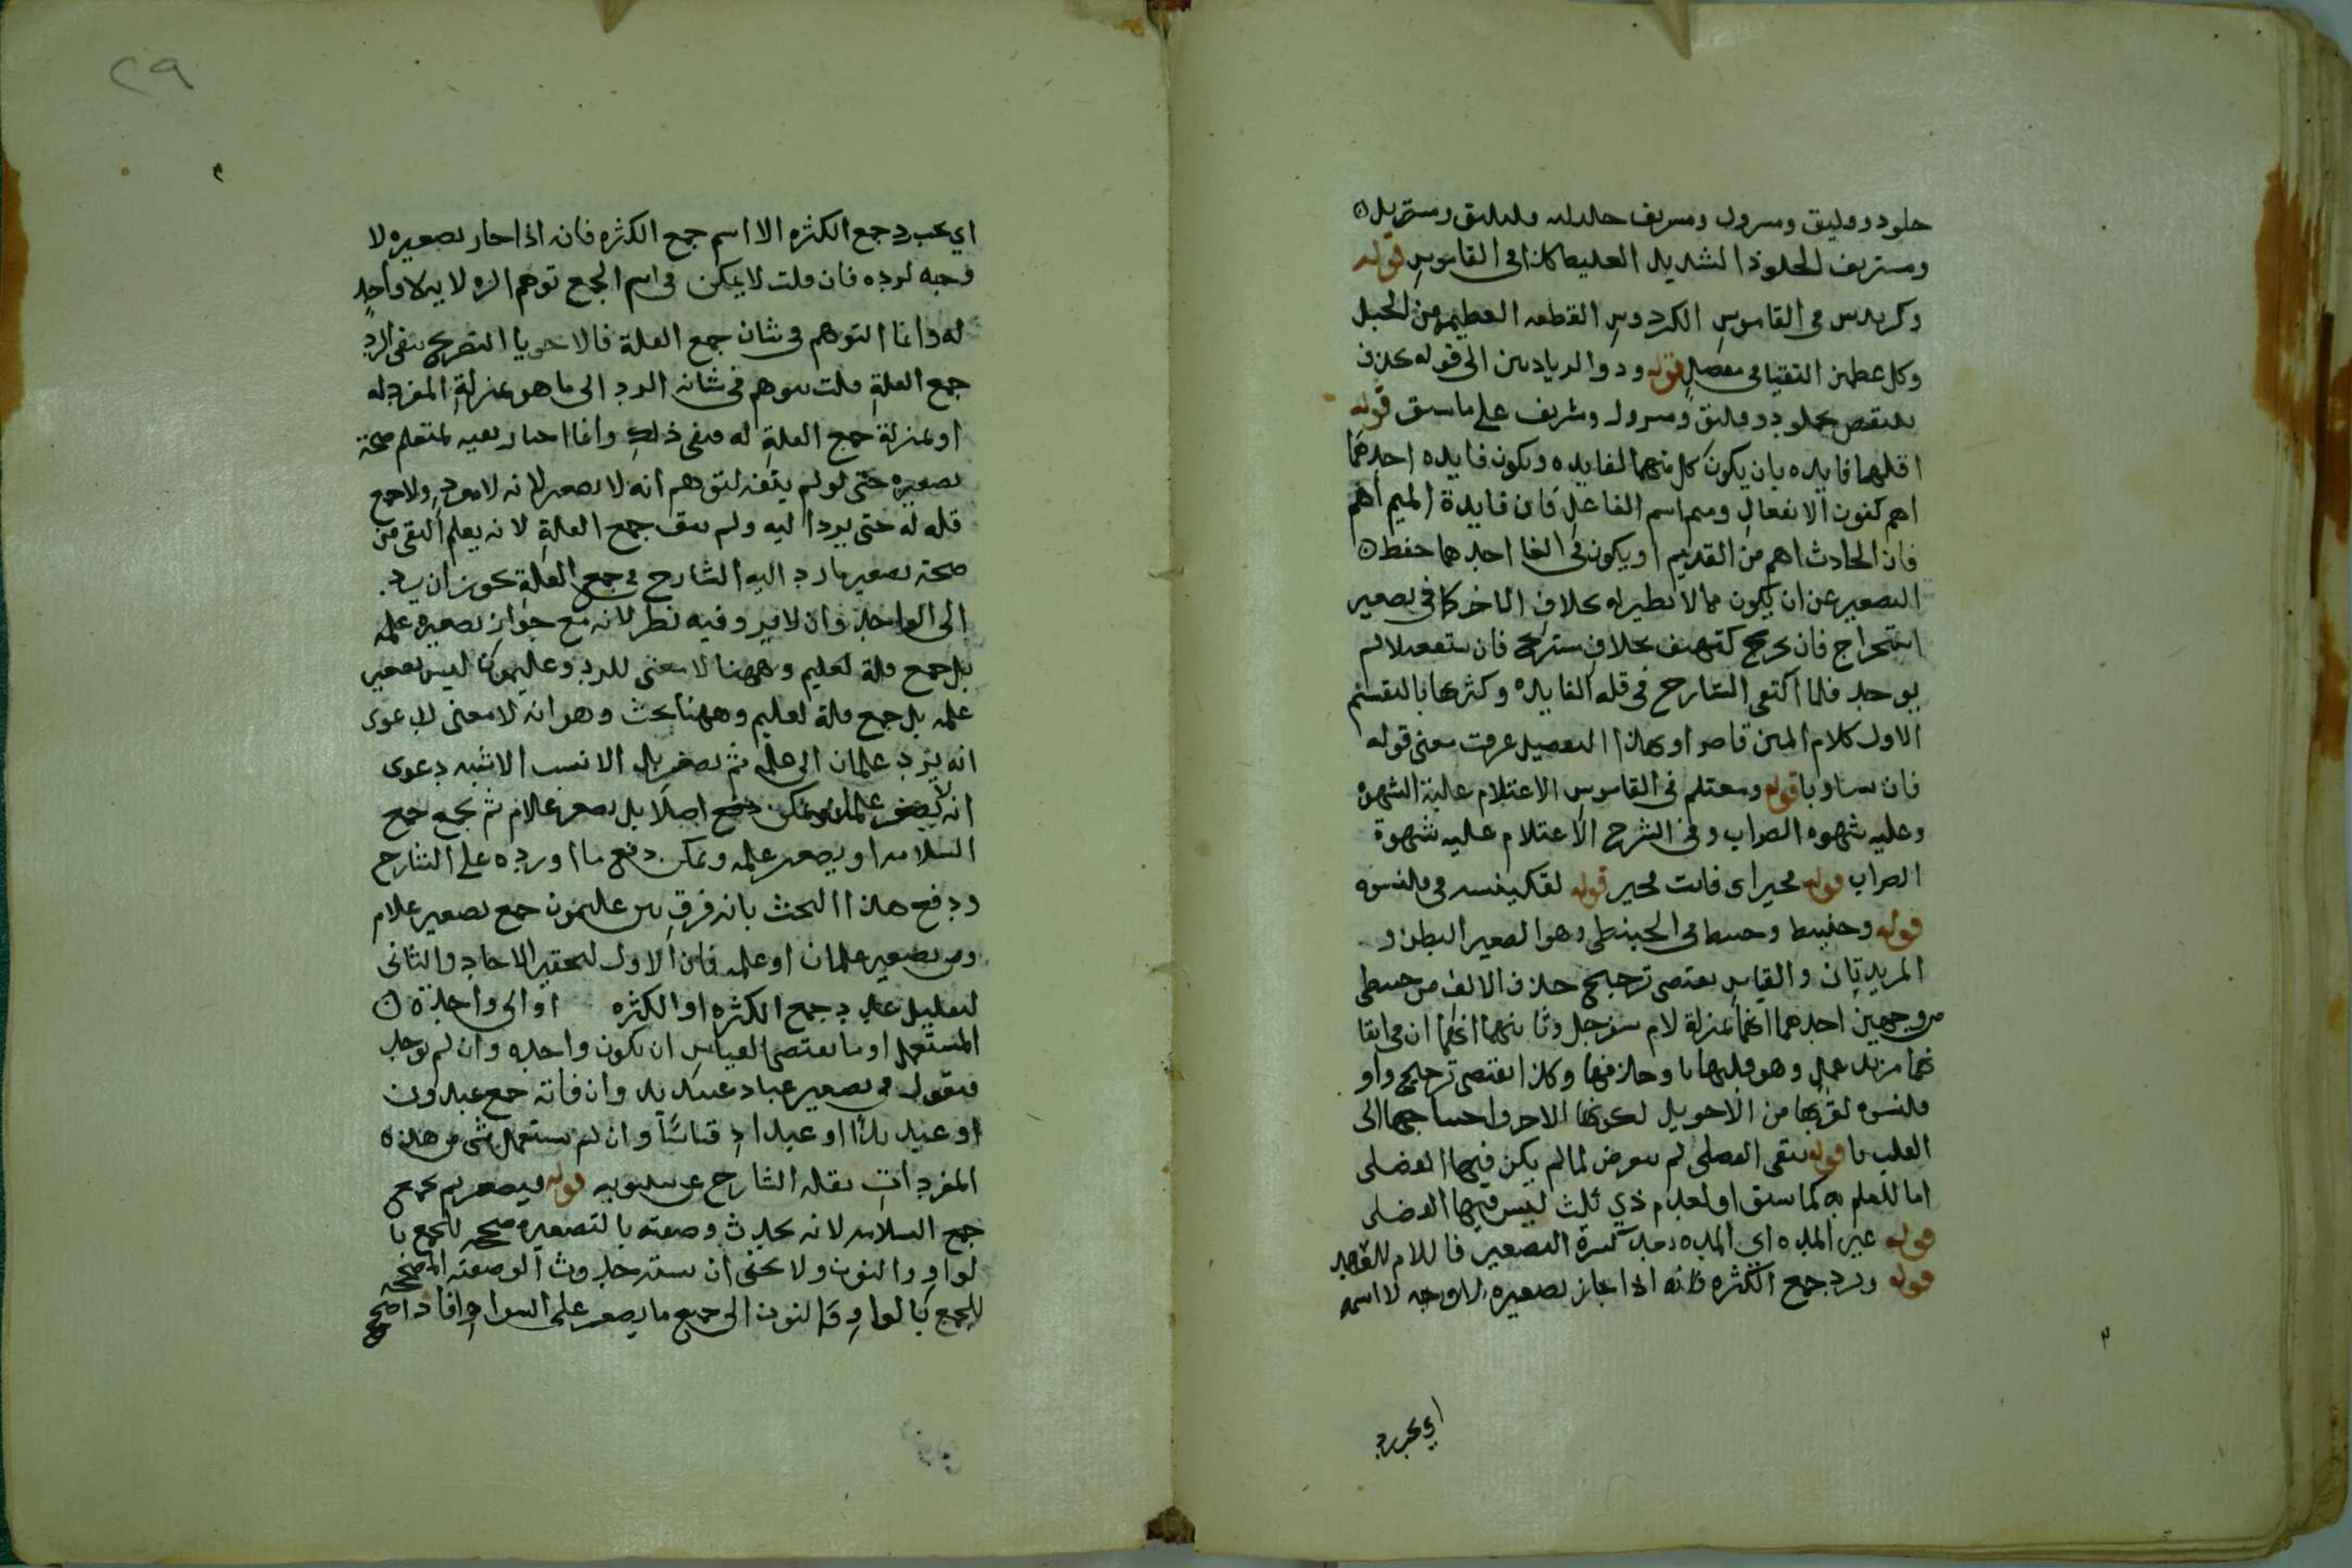 ومستريف الجلوذ الشديد الغليظ كذا في القاموس قوله
وكريدس في القاموس الكردوس القطعه العظيمة من الخيل
وكل عظمين التقيا في مفصل قوله وذو الزيادتين الى قوله يحذف
على ما سبق قوله
اقلهما فايده بان يكون كل منهما لفايده ويكون فايده احدهما
اهم كنون الانفعال وميم اسم الفاعل فان فايدة الميم اهم
فان الحادث اهم من القديم او يكون في الغا احدهما فقط
التصغير عن ان يكون مما لا نظير له بخلاف الاخر كما في تصغير
استخراج فان
يوجد فلما اكتفى الشارح في قله الفايده وكثرتها بالتقسيم
الاول كلام المتن قاصرا وبهذا التفصيل عرفت معنى قوله
فان تساويا قوله ومغتلم في القاموس الاغتلام غلبة الشهوه
وغلبه شهوه الضراب وفي الشرح الاغتلام غلبه شهوة
الضراب قوله مخير اى فانت مخير قوله لقكينسه في قلنسوه
قوله وحبنيط وحبيط في الحبنطى وهو الصغير البطن و
المزيدتان والقياس يقتضى ترجيح حذف الالف من حبنطى
من وجهين احدهما انها بمنزلة لام سفرجل وثانيهما انهما ان في ابقا
ئها مزيد عمل وهو قلبها يا وحذفها وكذا يقتضى ترجيح واو
قلنسوه لقربها من الاخر بل لكونها الاخر واحتياجها الى
القلب يا قوله تبقى الفضلى لم يتعرض لما لم يكن فيها الفضلى
اما للعلم به كما سبق او لعدم ذي ثلث ليس فيها الفضلى
قوله غير المده اي المده بعد كسرة التصغير فاللام للعهد
قوله ويرد جمع الكثره فانه اذا جاز تصغيره لا وجه لا اسمه
اي يجب رد
٢٩
اي يجب رد جمع الكثره الا اسم جمع الكثره فانه اذا جاز تصغيره لا
وجه لرده فان قلت لا يمكن في اسم الجمع توهم الرد لا يرد لا واحد
له وانما التوهم في شان جمع القلة فالاحرى بالتصريح بنفى الرد
جمع القلة قلت يتوهم في شانه الرد الى ما هو بمنزلة المفرد له
او بمنزلة جمع القلة له فنفى ذلك وانما اختار نفيه ليعلم صحة
تصغيره حتى لو لم ينفه لتوهم انه لا يصغر لانه لا مفرد ولا جمع
قله له حتى يرد اليه ولم ينف جمع القلة لانه يعلم النفى من
صحة تصغير ما رد اليه الشارح في جمع القلة يجوز ان يرد
الى الواحد وان لا يرد وفيه نظر لانه مع جواز تصغيره غلمه
بل جمع قلة لغليم وههنا لا معنى للرد وغليمون ليس تصغير
غلمه بل جمع قلة لغليم وههنا بحث وهو انه لا معنى لدعوى
انه يرد غلمان الى غلمه ثم يصغر بل الانسب الاشبه دعوى
انه لا يصغر غلمان اصلا بل يصغر غلام ثم يجمع جمع
السلامه او يصغر غلمه ويمكن دفع ما اورده على الشارح
ودفع هذا البحث بانه فرق بين غليمون جمع تصغير غلام
وبين تصغير غلمان او غلمه فان الاول لتحقير الاحاد والثانى
لتقليل عدد جمع الكثره او الكثره او الى واحدة
المستعمل او ما يقتضى القياس ان يكون واحده وان لم يوجد
فيقول في تصغير عباديد عبيديد وان فاته جمع عبيدون
قياسا وان لم يستعمل شى من هذه
المفردات نقله الشارح عن سيبويه قوله فيصغر ثم يجمع
جمع السلامه لانه يحدث وصفته بالتصغير مصححه للجمع با
لواو والنون ولا يخفى ان نسبة حدوث الوصفية المصححه
للجمع بالواو والنون الى جميع ما يصغر على السوا